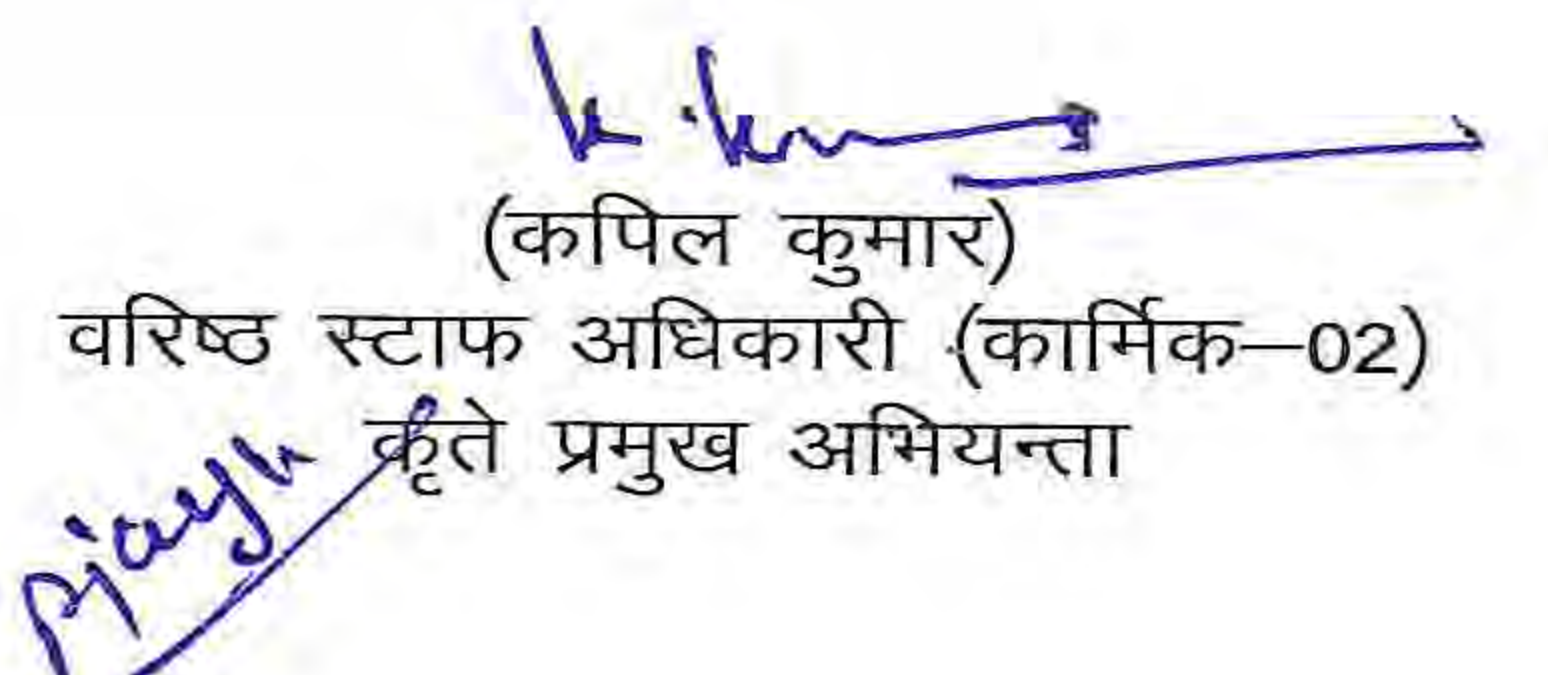 (कपिल कुमार)
वरिष्ठ स्टाफ अधिकारी (कार्मिक–02)
कृते प्रमुख अभियन्ता